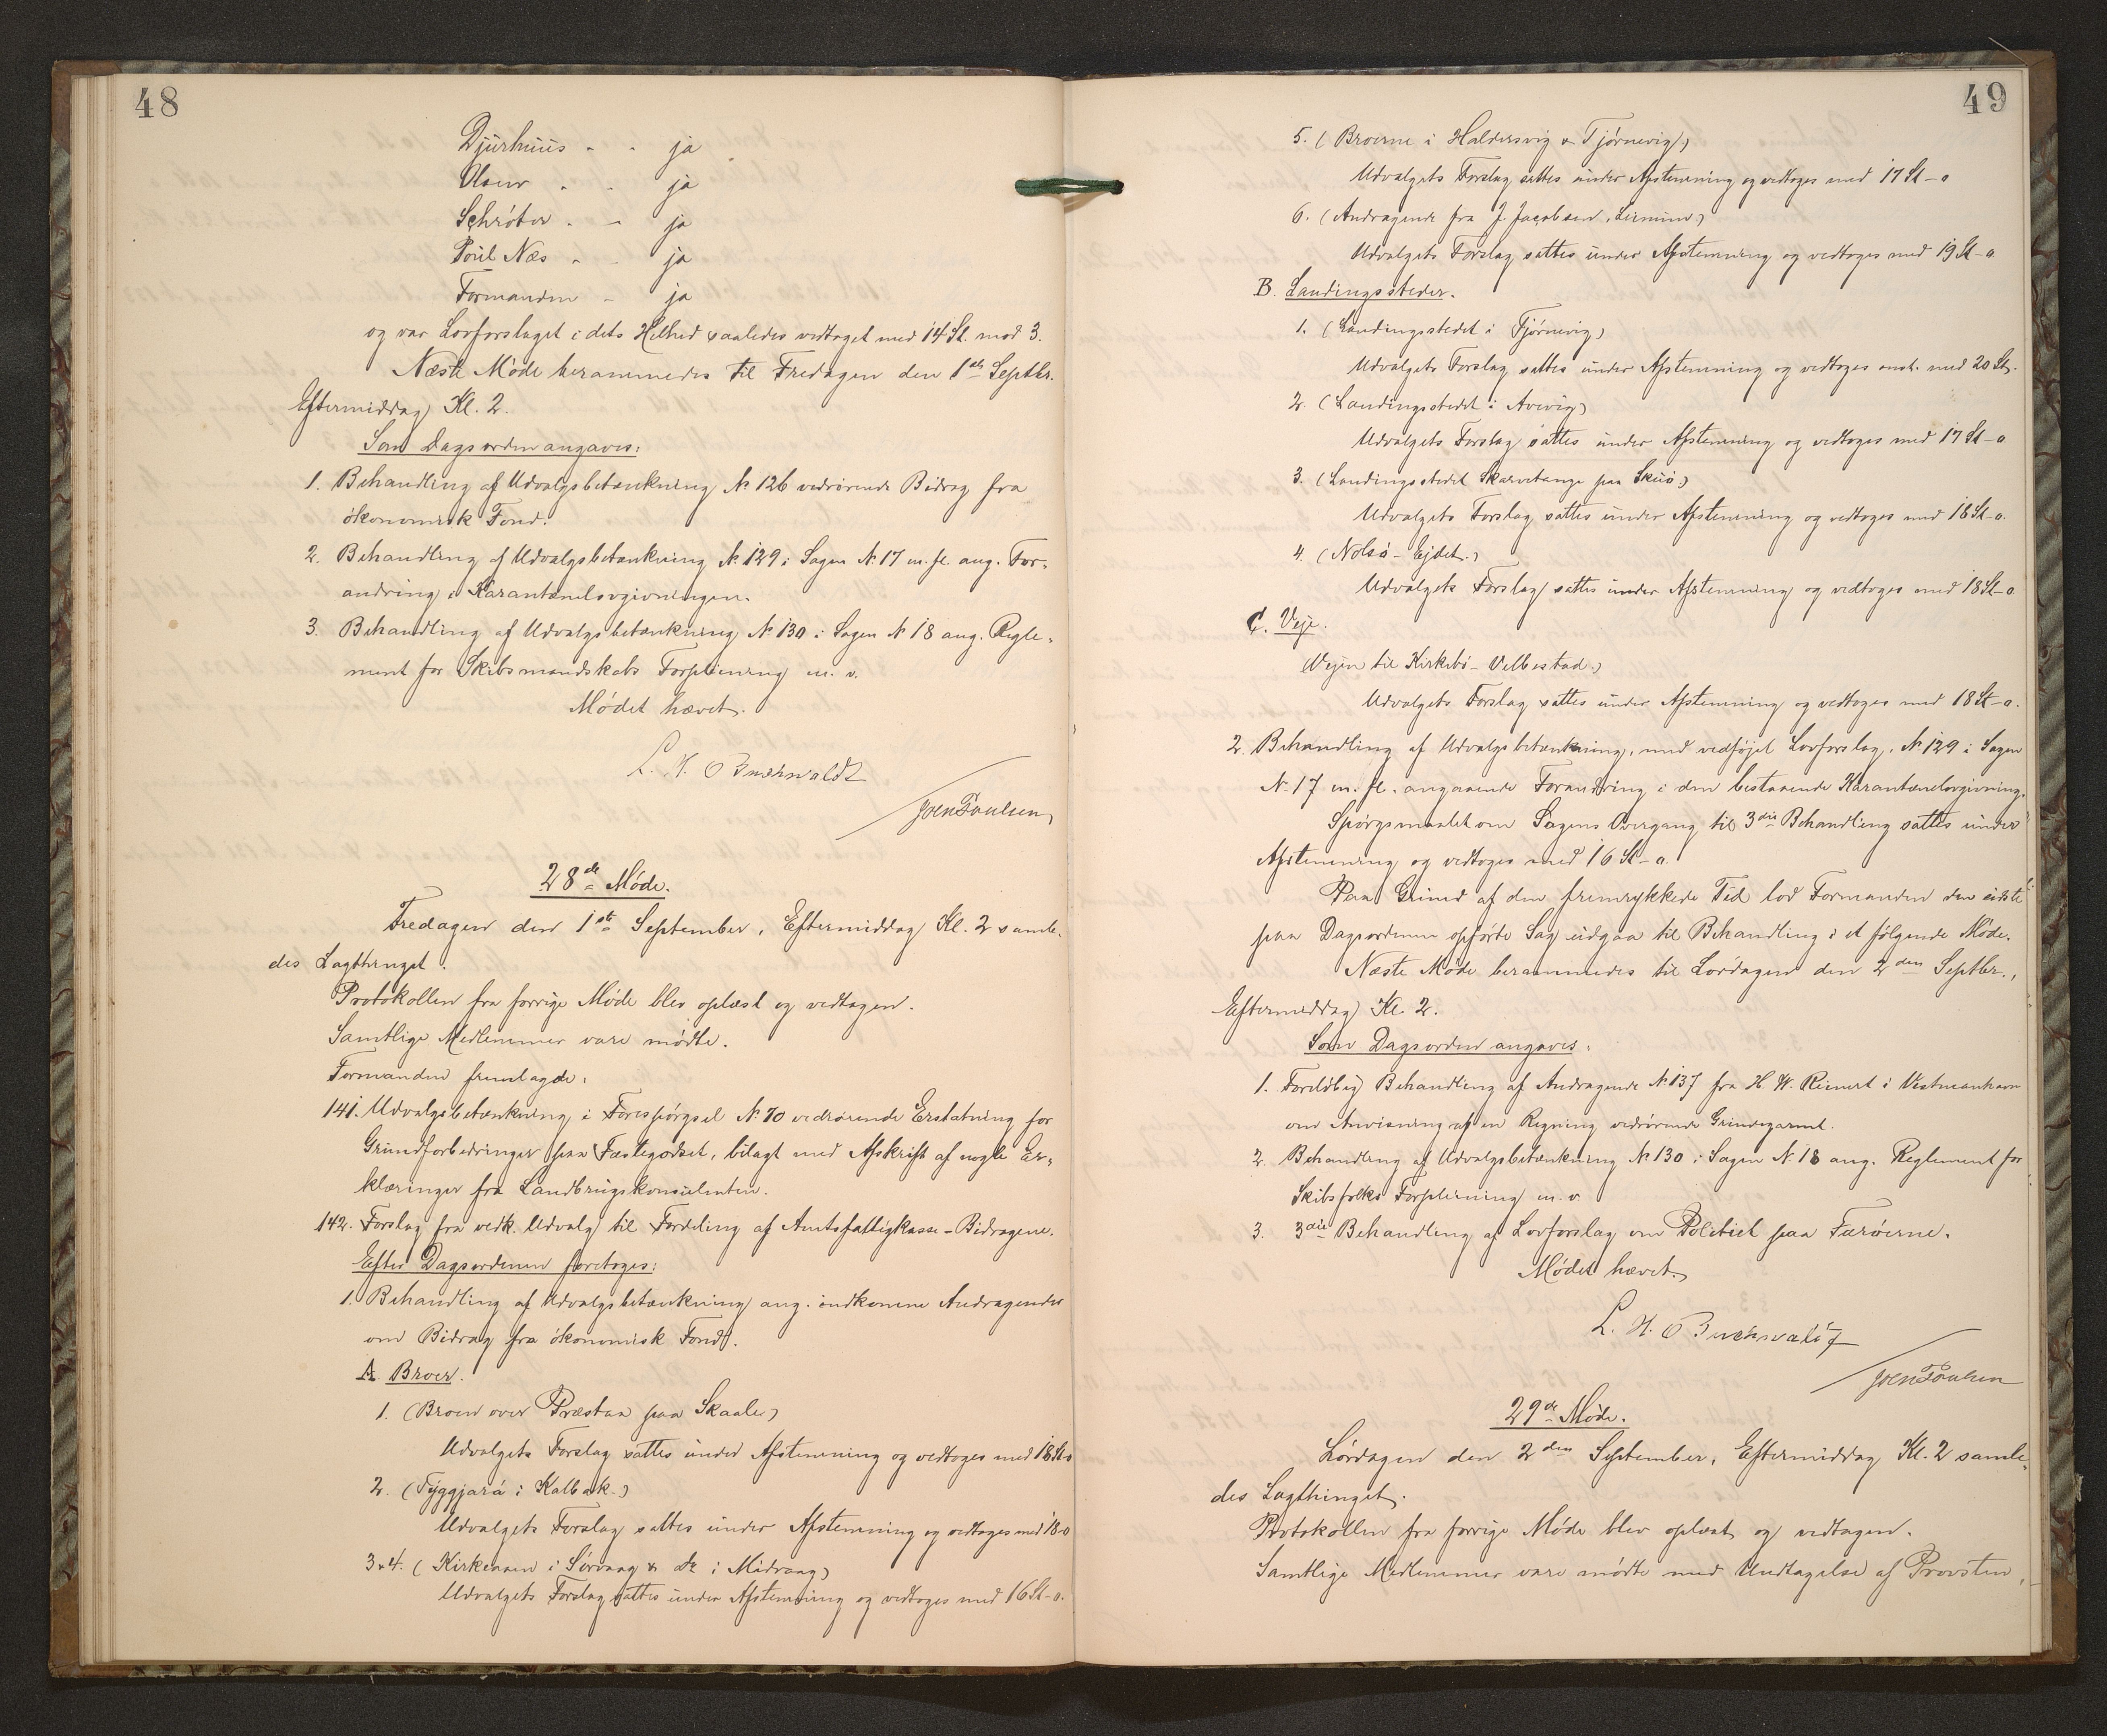 48
Djurhuus - - ja
Olsen - - ja
Schrøter - - ja
Poul Næs - - ja
Formanden - ja
og var Lovforslaget i dets Helhed saaledes vedtaget med 14 St. mod 3.
Næste Møde berammedes til Fredagen den 1ste Septbr.
Eftermiddag Kl. 2.
Som Dagsorden angaves:
1. Behandling af Udvalgsbetænkning No 126 vedrørende Bidrag fra
økonomisk Fond.
2. Behandling af Udvalgsbetænkning No 129 i Sagen No 17 m. fl. ang. For-
andring i Karantænelovgivningen.
3. Behandling af Udvalgsbetænkning No 130 i Sagen No 18 ang. Regle-
ment for Skibsmandskabs Forplejning m. v.
Mødet hævet.
L. H. O Buchwaldt
Joen Poulsen
28de Møde.
Fredagen den 1ste September, Eftermiddag Kl. 2 samle-
des Lagthinget.
Protokollen fra forrige Møde blev oplæst og vedtagen.
Samtlige Medlemmer vare mødte.
Formanden fremlagde:
141. Udvalgsbetænkning i Forespørgsel No 70 vedrørende Erstatning for
Grundforbedringer paa Fæstegodset, bilagt med Afskrift af nogle Er-
klæringer fra Landbrugskonsulenten.
142. Forslag fra vedk. Udvalg til Fordeling af Amtsfattigkasse-Bidragene.
Efter Dagsordenen foretoges:
1. Behandling af Udvalgsbetænkning ang. indkomne Andragender
om Bidrag fra økonomisk Fond.
A. Broer.
1. (Broen over Præstaa paa Skaale)
Udvalgets Forslag sattes under Afstemning og vedtoges med 18 St-o
2. (Tyggjará i Kalbak.)
Udvalgets Forslag sattes under Afstemning og vedtoges med 18-o
3 & 4. (Kirkeaaen i Sørvaag & do i Midvaag)
Udvalgets Forslag sattes under Afstemning og vedtoges med 16 St-o.
49
5. (Broerne i Haldersvig & Tjørnevig)
Udvalgets Forslag sattes under Afstemning og vedtoges med 17 St-o
6. (Andragende fra J. Jacobsen, Leinum)
Udvalgets Forslag sattes under Afstemning og vedtoges med 19 St-o.
B. Landingssteder.
1. (Landingsstedet i Tjørnevig)
Udvalgets Forslag sattes under Afstemning og vedtoges enst. med 20 St.
2. (Landingsstedet i Avevig)
Udvalgets Forslag sattes under Afstemning og vedtoges med 17 St-o
3. (Landingsstedet Skarvetange paa Skuø)
Udvalgets Forslag sattes under Afstemning og vedtoges med 18 St-o.
4. (Nolsø-Ejdet.)
Udvalgets Forslag sattes under Afstemning og vedtoges med 18 St-o
C. Veje.
(Vejen til Kirkebø-Velbestad.)
Udvalgets Forslag sattes under Afstemning og vedtoges med 18 St-o.
2. Behandling af Udvalgsbetænkning, med vedføjet Lovforslag, No 129 i Sagen
No 17 m. fl. angaaende Forandring i den bestaaende Karantænelovgivning.
Spørgsmaalet om Sagens Overgang til 3die Behandling sattes under
Afstemning og vedtoges med 16 St-o.
Paa Grund af den fremrykkede Tid lod Formanden den sidste
paa Dagsordenen opførte Sag udgaa til Behandling i et følgende Møde.
Næste Møde berammedes til Lørdagen den 2den Septbr.,
Eftermiddag Kl. 2.
Som Dagsorden angaves:
1. Foreløbig Behandling af Andragende No 137 fra H W. Reinert i Vestmanhavn
om Anvisning af en Regning vedrørende Grindegarnet.
2. Behandling af Udvalgsbetænkning No 130 i Sagen No 18 ang. Reglement for
Skibsfolks Forplejning m. v
3. 3die Behandling af Lovforslag om Politiet paa Færøerne.
Mødet hævet.
L. H. O Buchwaldt
Joen Poulsen
29de Møde.
Lørdagen den 2den September, Eftermiddag Kl. 2 samle-
des Lagthinget.
Protokollen fra forrige Møde blev oplæst og vedtagen.
Samtlige Medlemmer vare mødte med Undtagelse af Provsten,